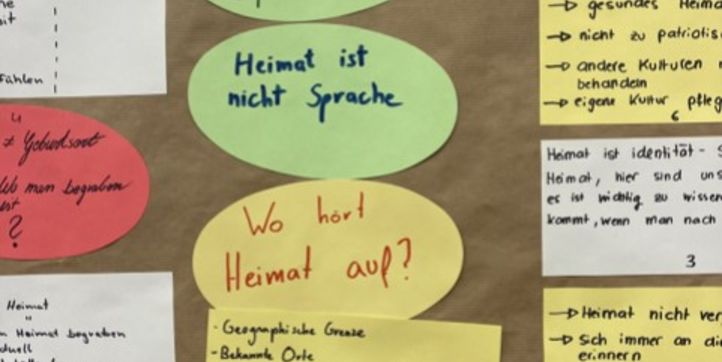 fühlen
4
≠ Geburtsort
Wo man begraben
ist
?
Heimat
"
Heimat begraben
Heimat ist
nicht Sprache
Wo hört
Heimat auf?
- Geographische Grenze
- Bekannte Orte
→ gesundes Heima
→ nicht zu patriotis
→ andere Kulturen
behandeln
→ eigene Kultur pfleg
6
Heimat ist identität -
Heimat, hier sind uns
es ist wichtig zu wissen
kommt, wenn man nach
3
→ Heimat nicht ver
→ Sich immer an di
erinnern